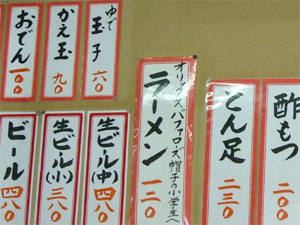 ゆで
玉子
六〇
かえ玉
九〇
おでん
一〇〇
酢もつ
二〇〇
とん足
二三〇
オリックスバファローズ帽子の小学生へ
ラーメン
一二〇
生ビール(中)
四八〇
生ビール(小)
三八〇
ビール
四八〇